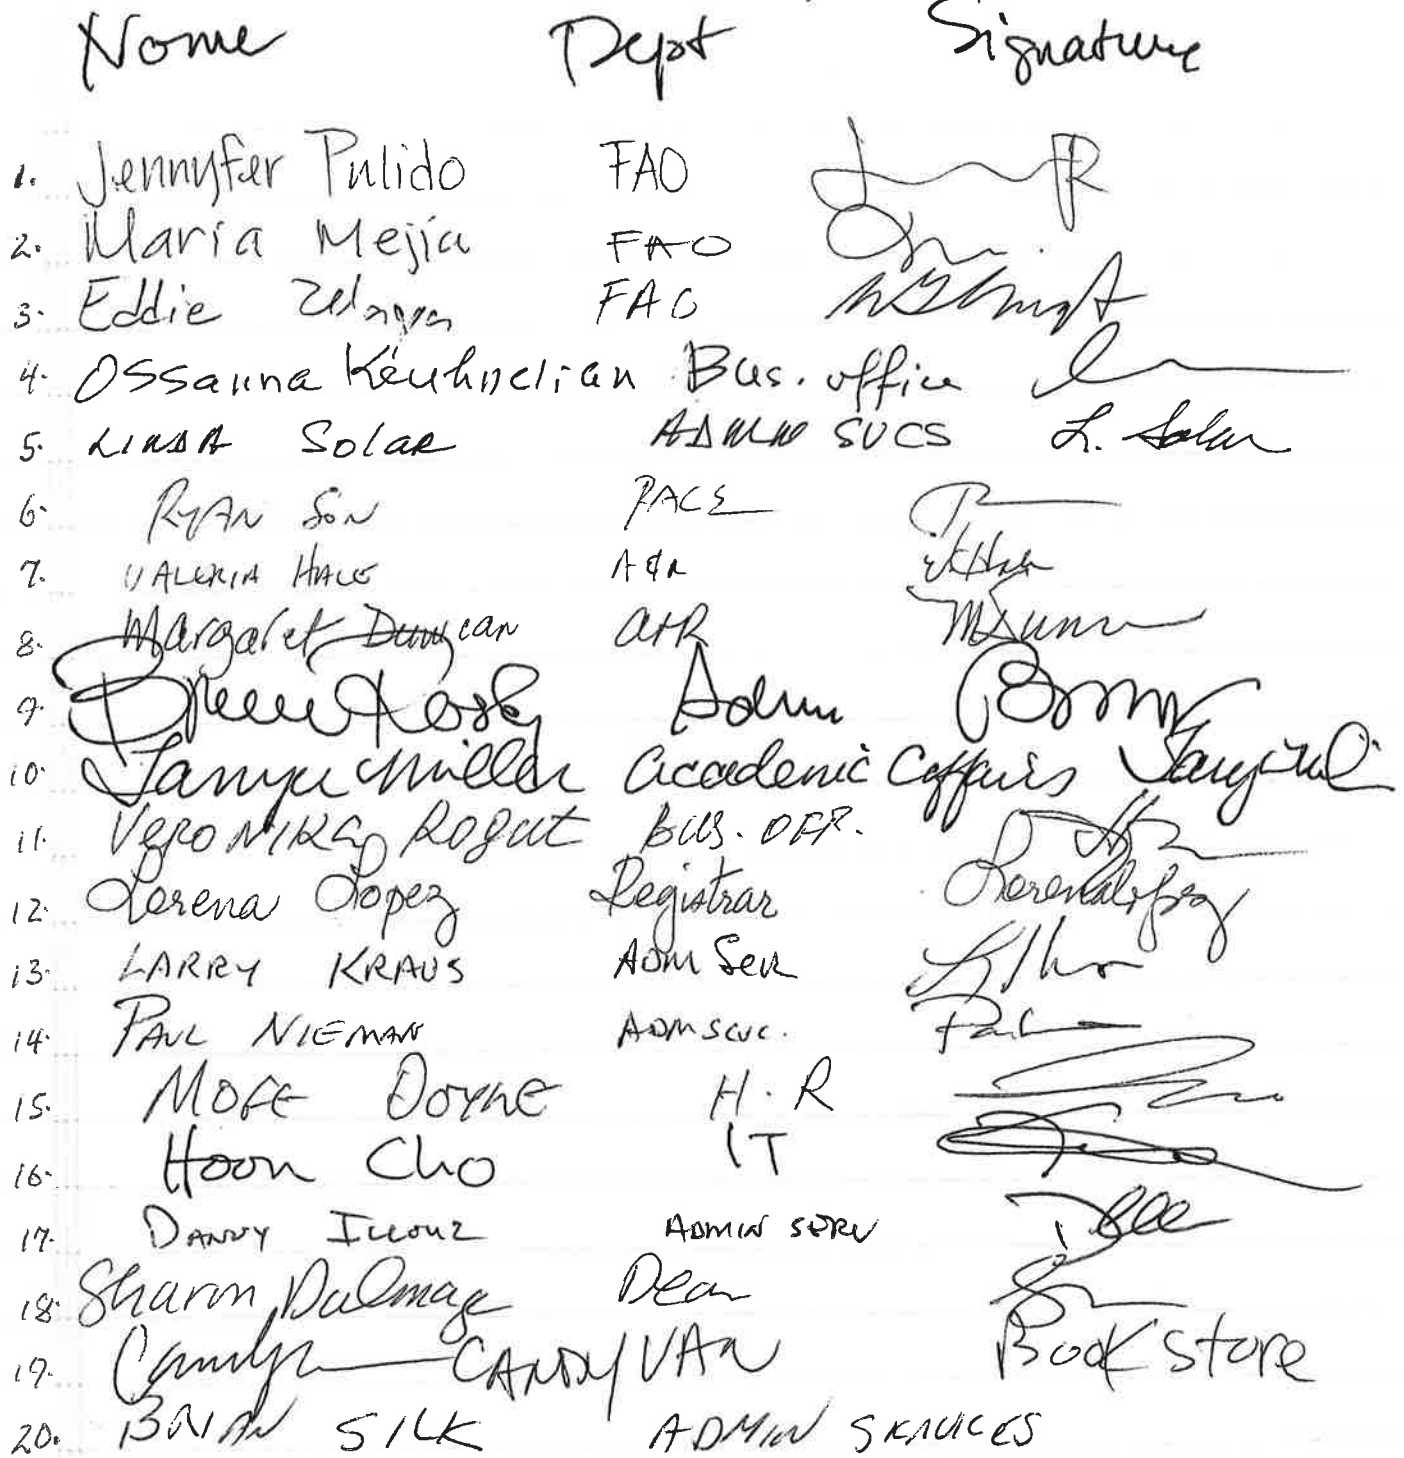 Name Dept Signature
1. Jennyfer Pulido FAO
2. Maria Mejia FAO
3. Eddie Zelaya FAO
4. Ossanna Keuhnelian Bus. office
5. LINDA Solar ADMIN SVCS L. Solar
6. RYAN SON PACE
7. VALERIA HALE A&R
8. Margaret Duncan A+R
9. Admin
10. Tanya Miller Academic Affairs
11. VERONIKA Rogut BUS. OFF.
12. Lorena Lopez Registrar Lorena Lopez
13. LARRY KRAUS ADM Ser
14. PAUL NIEMAN ADM SCVC.
15. MOFE DOYNE H.R
16. Hoon Cho IT
17. DANNY ILLOUZ ADMIN SERV
18. Sharon Dalmage Dean
19. CANDY VAN Bookstore
20. BRIAN SILK ADMIN SERVICES